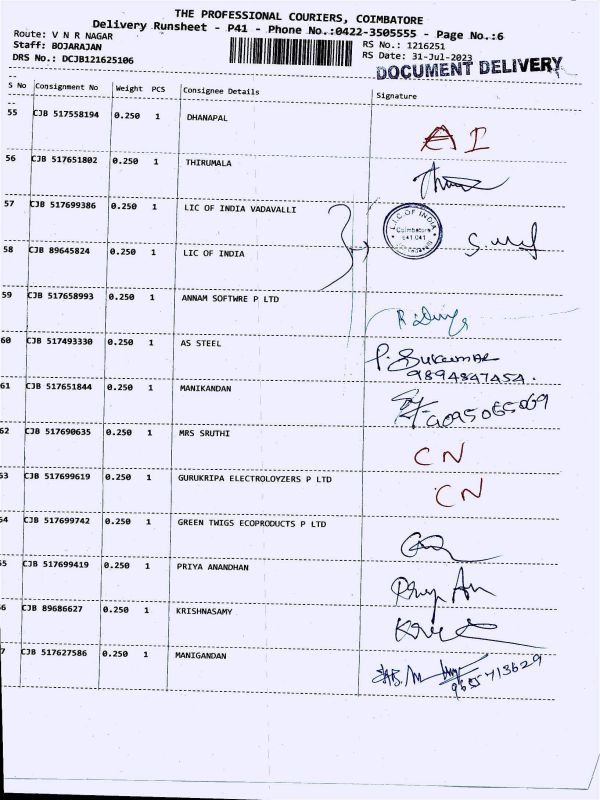 THE PROFESSIONAL COURIERS, COIMBATORE
Delivery Runsheet - P41 - Phone No.:0422-3505555 - Page No.:6
Route: V N R NAGAR
Staff: BOJARAJAN
DRS No.: DCJB121625106
RS No.: 1216251
RS Date: 31-Jul-2023
DOCUMENT DELIVERY
S No Consignment No Weight PCS Consignee Details Signature
55 CJB 517558194 0.250 1 DHANAPAL A I
56 CJB 517651802 0.250 1 THIRUMALA
57 CJB 517699386 0.250 1 LIC OF INDIA VADAVALLI
L.I.C. OF INDIA
Coimbatore
641 041
58 CJB 89645824 0.250 1 LIC OF INDIA
59 CJB 517658993 0.250 1 ANNAM SOFTWRE P LTD
60 CJB 517493330 0.250 1 AS STEEL P. Sukumar
9894847454.
61 CJB 517651844 0.250 1 MANIKANDAN 9095065069
62 CJB 517690635 0.250 1 MRS SRUTHI CN
53 CJB 517699619 0.250 1 GURUKRIPA ELECTROLOYZERS P LTD CN
54 CJB 517699742 0.250 1 GREEN TWIGS ECOPRODUCTS P LTD
55 CJB 517699419 0.250 1 PRIYA ANANDHAN
6 CJB 89686627 0.250 1 KRISHNASAMY
7 CJB 517627586 0.250 1 MANIGANDAN
9655713629